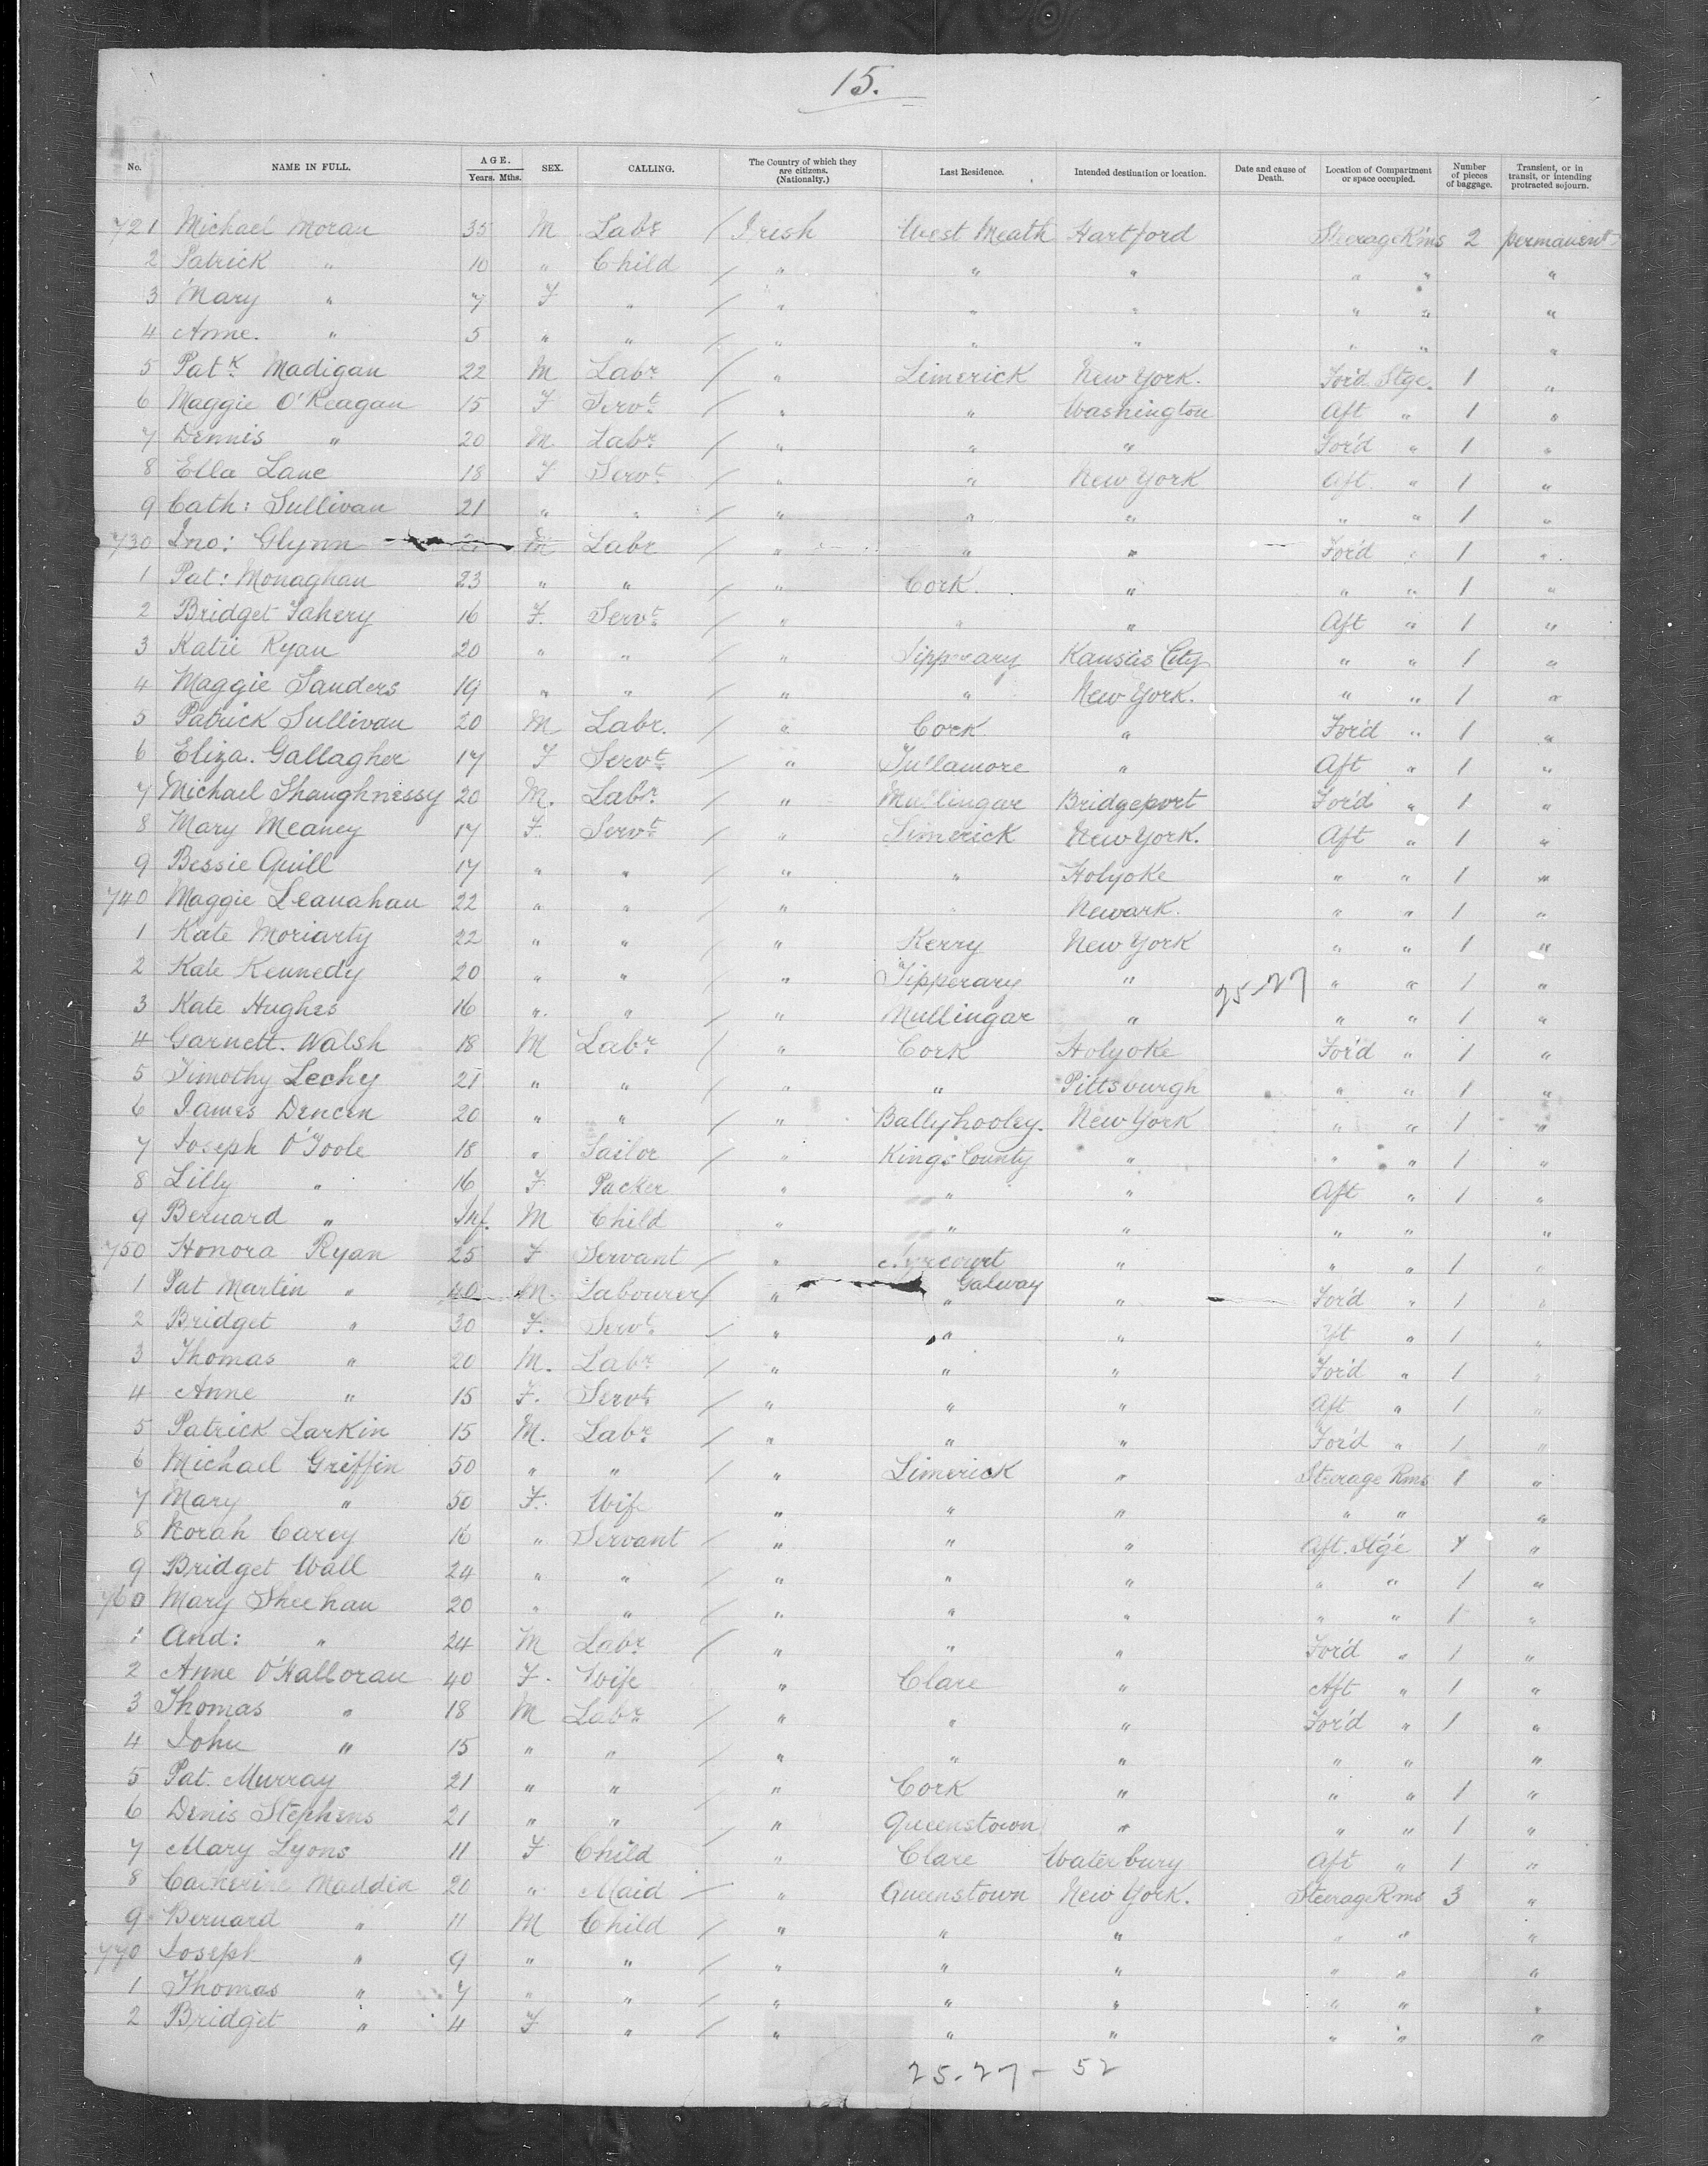 15.
No. NAME IN FULL. AGE. Years. Mths. SEX. CALLING. The Country of which they are citizens. (Nationalty.) Last Residence. Intended destination or location. Date and cause of Death. Location of Compartment or space occupied. Number of pieces of baggage. Transient, or in transit, or intending protracted sojourn.
721 Michael Moran 35 M Labr / Irish West Meath Hartford Steerage R'ms 2 permanent
2 Patrick " 10 " Child / " " " " " "
3 Mary " 7 F " / " " " " " "
4 Anne. " 5 " " / " " " " " "
5 Patk Madigan 22 M Labr / " Limerick New York. For'd Stge. 1 "
6 Maggie O'Reagan 15 F Servt / " " Washington Aft " 1 "
7 Dennis " 20 M Labr / " " " For'd " 1 "
8 Ella Lane 18 F Servt / " " New York Aft " 1 "
9 Cath: Sullivan 21 " " / " " " " " 1 "
730 Jno: Glynn M Labr / " " " For'd " 1 "
1 Pat: Monaghan 23 " " / " Cork. " " " 1 "
2 Bridget Fahery 16 F. Servt / " " " Aft " 1 "
3 Katie Ryan 20 " " / " Tipperary Kansas City " " 1 "
4 Maggie Sanders 19 " " / " " New York. " " 1 "
5 Patrick Sullivan 20 M Labr. / " Cork " For'd " 1 "
6 Eliza. Gallagher 17 F Servt / " Tullamore " Aft " 1 "
7 Michael Shaughnessy 20 M. Labr / " Mullingar Bridgeport For'd " 1 "
8 Mary Meaney 17 F. Servt / " Limerick New York. Aft " 1 "
9 Bessie Quill 17 " " / " " Holyoke " " 1 "
740 Maggie Leanahan 22 " " / " " Newark. " " 1 "
1 Kate Moriarty 22 " " / " Kerry New York " " 1 "
2 Kate Kennedy 20 " " / " Tipperary " 25-27 " " 1 "
3 Kate Hughes 16 " " / " Mullingar " " " 1 "
4 Garnett. Walsh 18 M Labr / " Cork Holyoke For'd " 1 "
5 Timothy Lechy 21 " " / " " Pittsburgh " " 1 "
6 James Dencen 20 " " / " Ballyhooley. New York " " 1 "
7 Joseph O'Toole 18 " Tailor / " Kings County " " " 1 "
8 Lilly " 16 F Packer " " " Aft " 1 "
9 Bernard " Inf. M Child " " " " " "
750 Honora Ryan 25 F Servant / " Eyrecourt " " " 1 "
1 Pat Martin " 40 M. Labourer / " Galway " " For'd " 1 "
2 Bridget " 30 F. Servt / " " " Aft " 1 "
3 Thomas " 20 M. Labr / " " " For'd " 1 "
4 Anne " 15 F. Servt / " " " Aft " 1 "
5 Patrick Larkin 15 M. Labr / " " " For'd " 1 "
6 Michael Griffin 50 " " / " Limerick " Steerage Rms 1 "
7 Mary " 50 F. Wife " " " " " "
8 Norah Carey 16 " Servant / " " " Aft. Stge "
9 Bridget Wall 24 " " / " " " " " 1 "
760 Mary Sheehan 20 " " / " " " " " 1 "
1 And: " 24 M Labr / " " " For'd " 1 "
2 Anne O'Halloran 40 F. Wife " Clare " Aft " 1 "
3 Thomas " 18 M Labr / " " " For'd " 1 "
4 John " 15 " " / " " " " " "
5 Pat. Murray 21 " " / " Cork " " " 1 "
6 Denis Stephens 21 " " / " Queenstown " " " 1 "
7 Mary Lyons 11 F Child / " Clare Waterbury Aft " 1 "
8 Catherine Madden 20 " Maid / " Queenstown New York. Steerage Rms 3 "
9 Bernard " 11 M Child / " " " " " "
770 Joseph " 9 " " / " " " " " "
1 Thomas " 7 " " / " " " " " "
2 Bridget " 4 F " / " " " " " "
25-27- 52